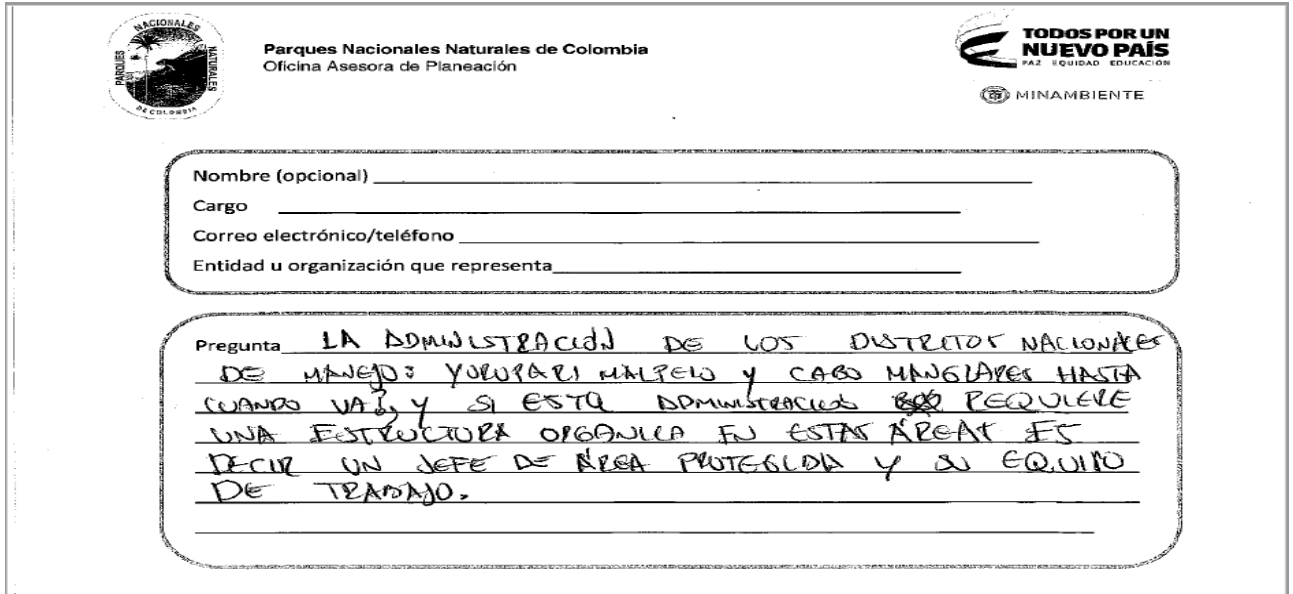 PARQUES NACIONALES NATURALES
DE COLOMBIA
Parques Nacionales Naturales de Colombia
Oficina Asesora de Planeación
TODOS POR UN
NUEVO PAÍS
PAZ EQUIDAD EDUCACIÓN
MINAMBIENTE
Nombre (opcional)
Cargo
Correo electrónico/teléfono
Entidad u organización que representa
Pregunta LA ADMINISTRACIÓN DE LOS DISTRITOS NACIONALES
DE MANEJO: YURUPARI MALPELO Y CABO MANGLARES HASTA
CUANDO VA?, Y SI ESTA ADMINISTRACION REQUIERE
UNA ESTRUCTURA ORGANICA EN ESTAS ÁREAS ES
DECIR UN JEFE DE ÁREA PROTEGIDA Y SU EQUIPO
DE TRABAJO.